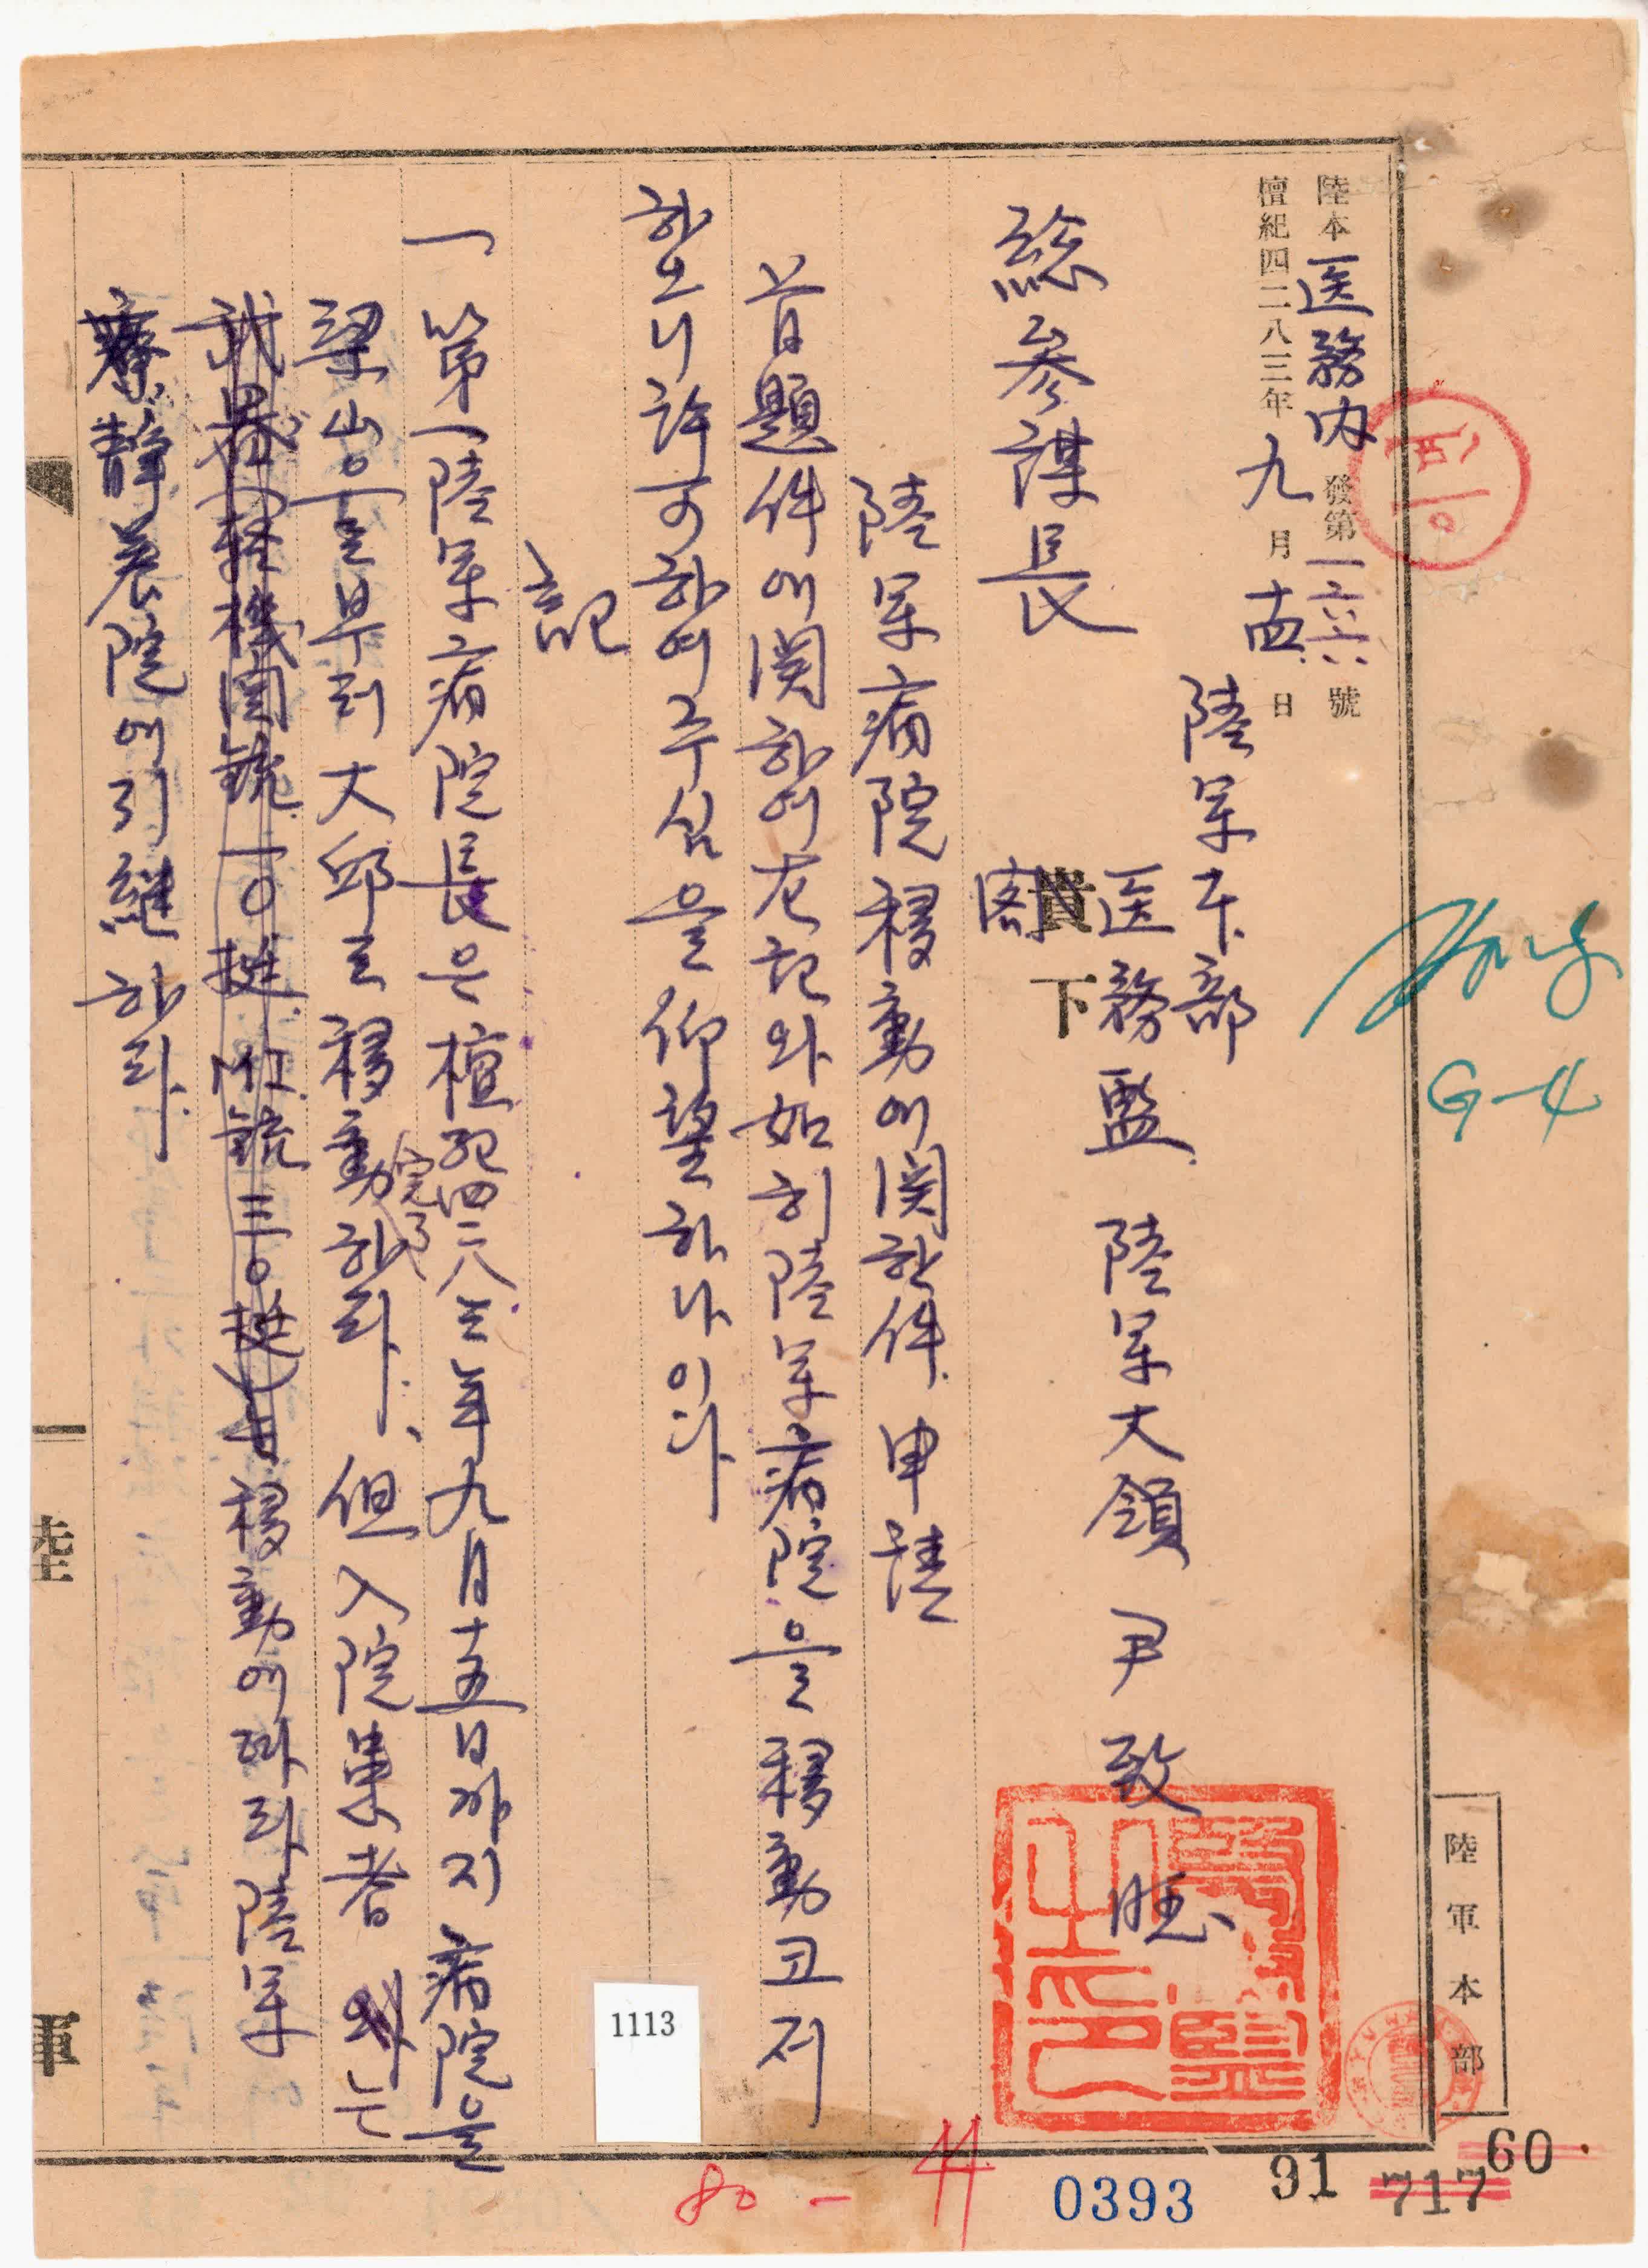 陸本 医務内 發第 一六六 號
檀紀四二八三年 九 月 十四 日
陸军本部
医務監 陸军大領 尹致旺
貴下
総参謀長 閣
陸军病院移動에関한件 申請
首題件에関하여左記와如히陸军病院을移動코저
하오니許可하여주심을仰望하나이다
記
一 第一陸军病院長은檀紀四二八三年九月十五日까지病院을
梁山으로부터大邱로移動完了하라. 但入院患者는
武器(軽機関銃一〇挺 M1銃三〇挺)移動에따라陸军
療静養院에引継하라.
陸軍本部
陸
軍
G-4
1113
80 - 44
0393
91
717
60